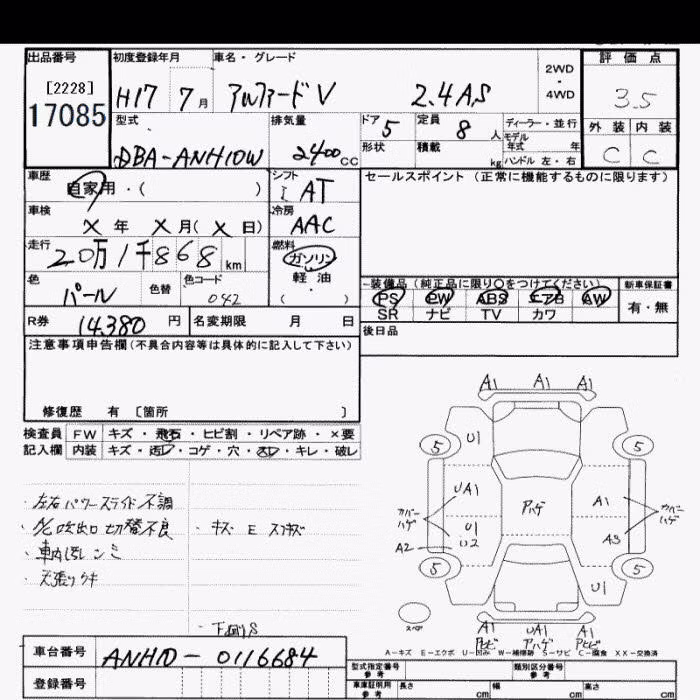 出品番号 初度登録年月 車名・グレード 2WD 評価点
[2228] H17 7月 アルファードV 2.4AS ・ 4WD 3.5
17085 型式 排気量 ドア 5 定員 8人 ディーラー・並行 外装 内装
DBA-ANH10W 2400cc 形状 積載 kg モデル年式 年 ハンドル 左・右 C C
車歴 シフト セールスポイント(正常に機能するものに限ります)
自家用・( ) I AT
車検 冷房
X 年 X 月( X 日) AAC
走行 燃料
20万1千868km ガソリン
色 色替 色コード 軽油 装備品(純正品に限り○をつけてください) 新車保証書
パール 042 ( ・ ) PS PW ABS エアB AW 有・無
SR ナビ TV カワ
R券 14,380円 名変期限 月 日 後日品
注意事項申告欄(不具合内容等は具体的に記入して下さい)
修復歴 有 〔箇所 〕
検査員 FW キズ・飛石・ヒビ割・リペア跡・×要
記入欄 内装 キズ・汚レ・コゲ・穴・スレ・キレ・破レ
・左右パワースライド不調
吹出口切替不良 ・キズ E スリキズ
・車内 シミ
・天張りウキ
・下廻りS
A1 A1 A1
5 U1 5
カバーハゲ UA1 アハゲ A1 カバーハゲ
U1 A3
A2 U2
5 5
U1
スペア
A1 UA1 A1
アヒビ アハゲ アヒビ
A-キズ E-エクボ U-凹み W-補修跡 S-サビ C-腐食 XX-交換済
車台番号 ANH10-0116684
型式指定番号 参考 類別区分番号 参考
登録番号 車庫証明用 参考 長さ cm 幅 cm 高さ cm